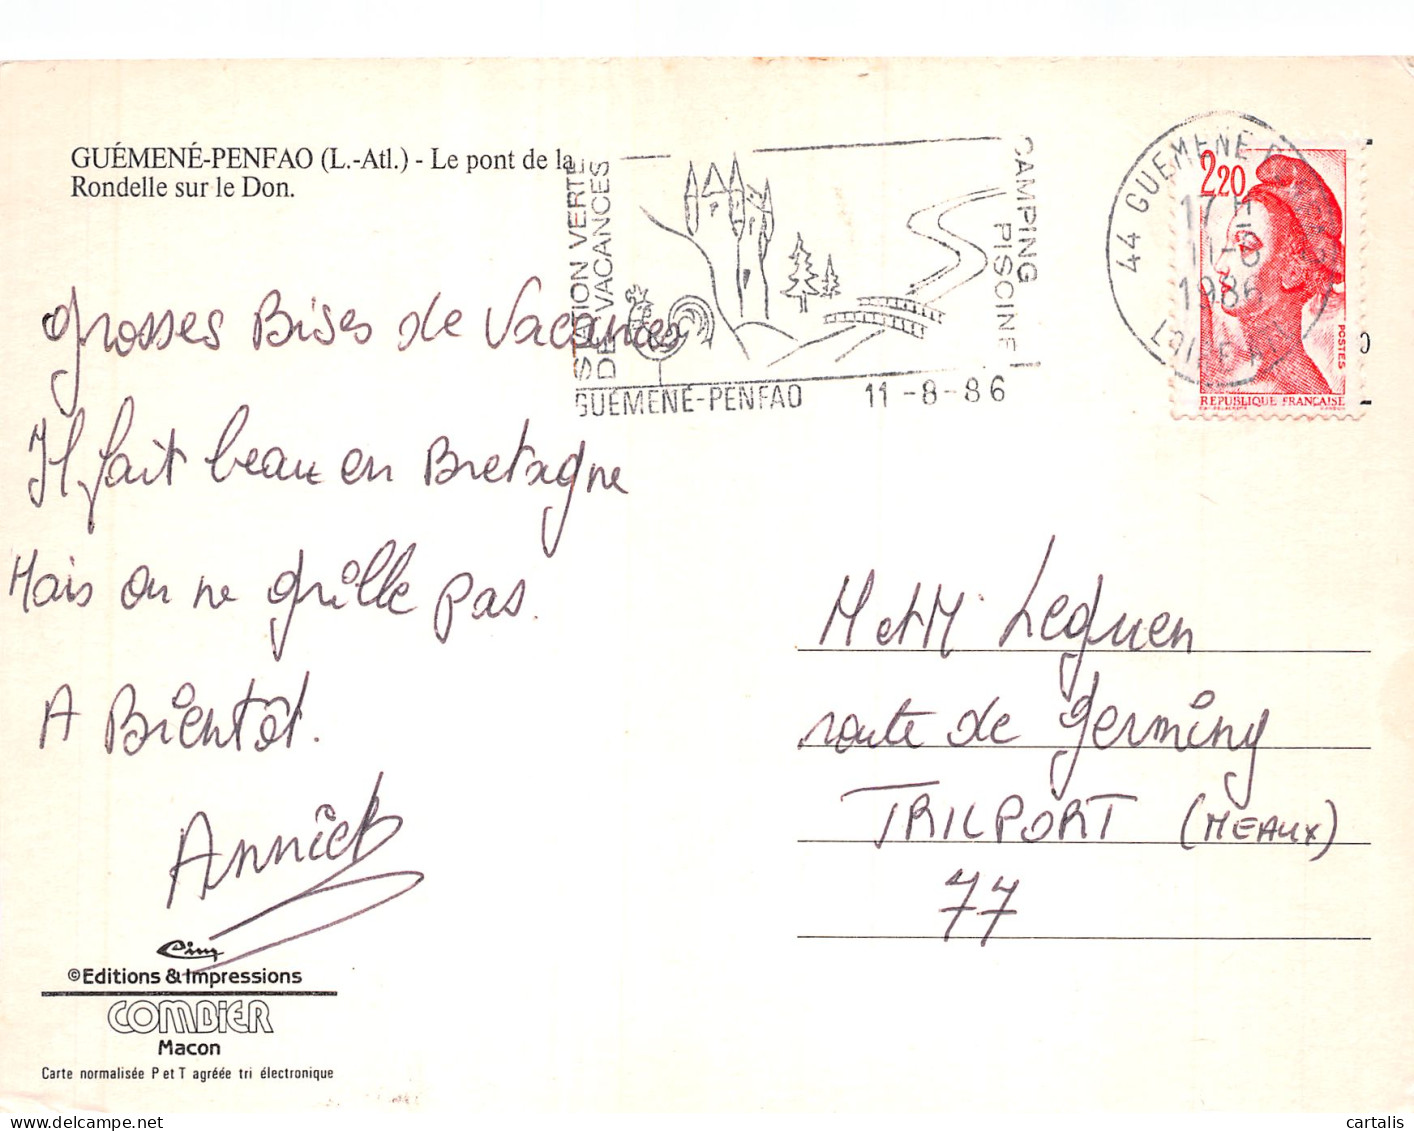 GUÉMENÉ-PENFAO (L.-Atl.) - Le pont de la
Rondelle sur le Don.
STATION VERTE
DE VACANCES
CAMPING
PISCINE
GUÉMENÉ-PENFAO 11-8-86
44 GUEMENE
17 H
11-8
1986
2,20
POSTES
REPUBLIQUE FRANÇAISE
grosses Bises de Vacances
Il fait beau en Bretagne
Mais on ne grille pas.
A Bientôt.
Annick
M et M Leguen
route de Germiny
TRILPORT (MEAUX)
77
Cim
©Editions & Impressions
COMBIER
Macon
Carte normalisée P et T agréée tri électronique